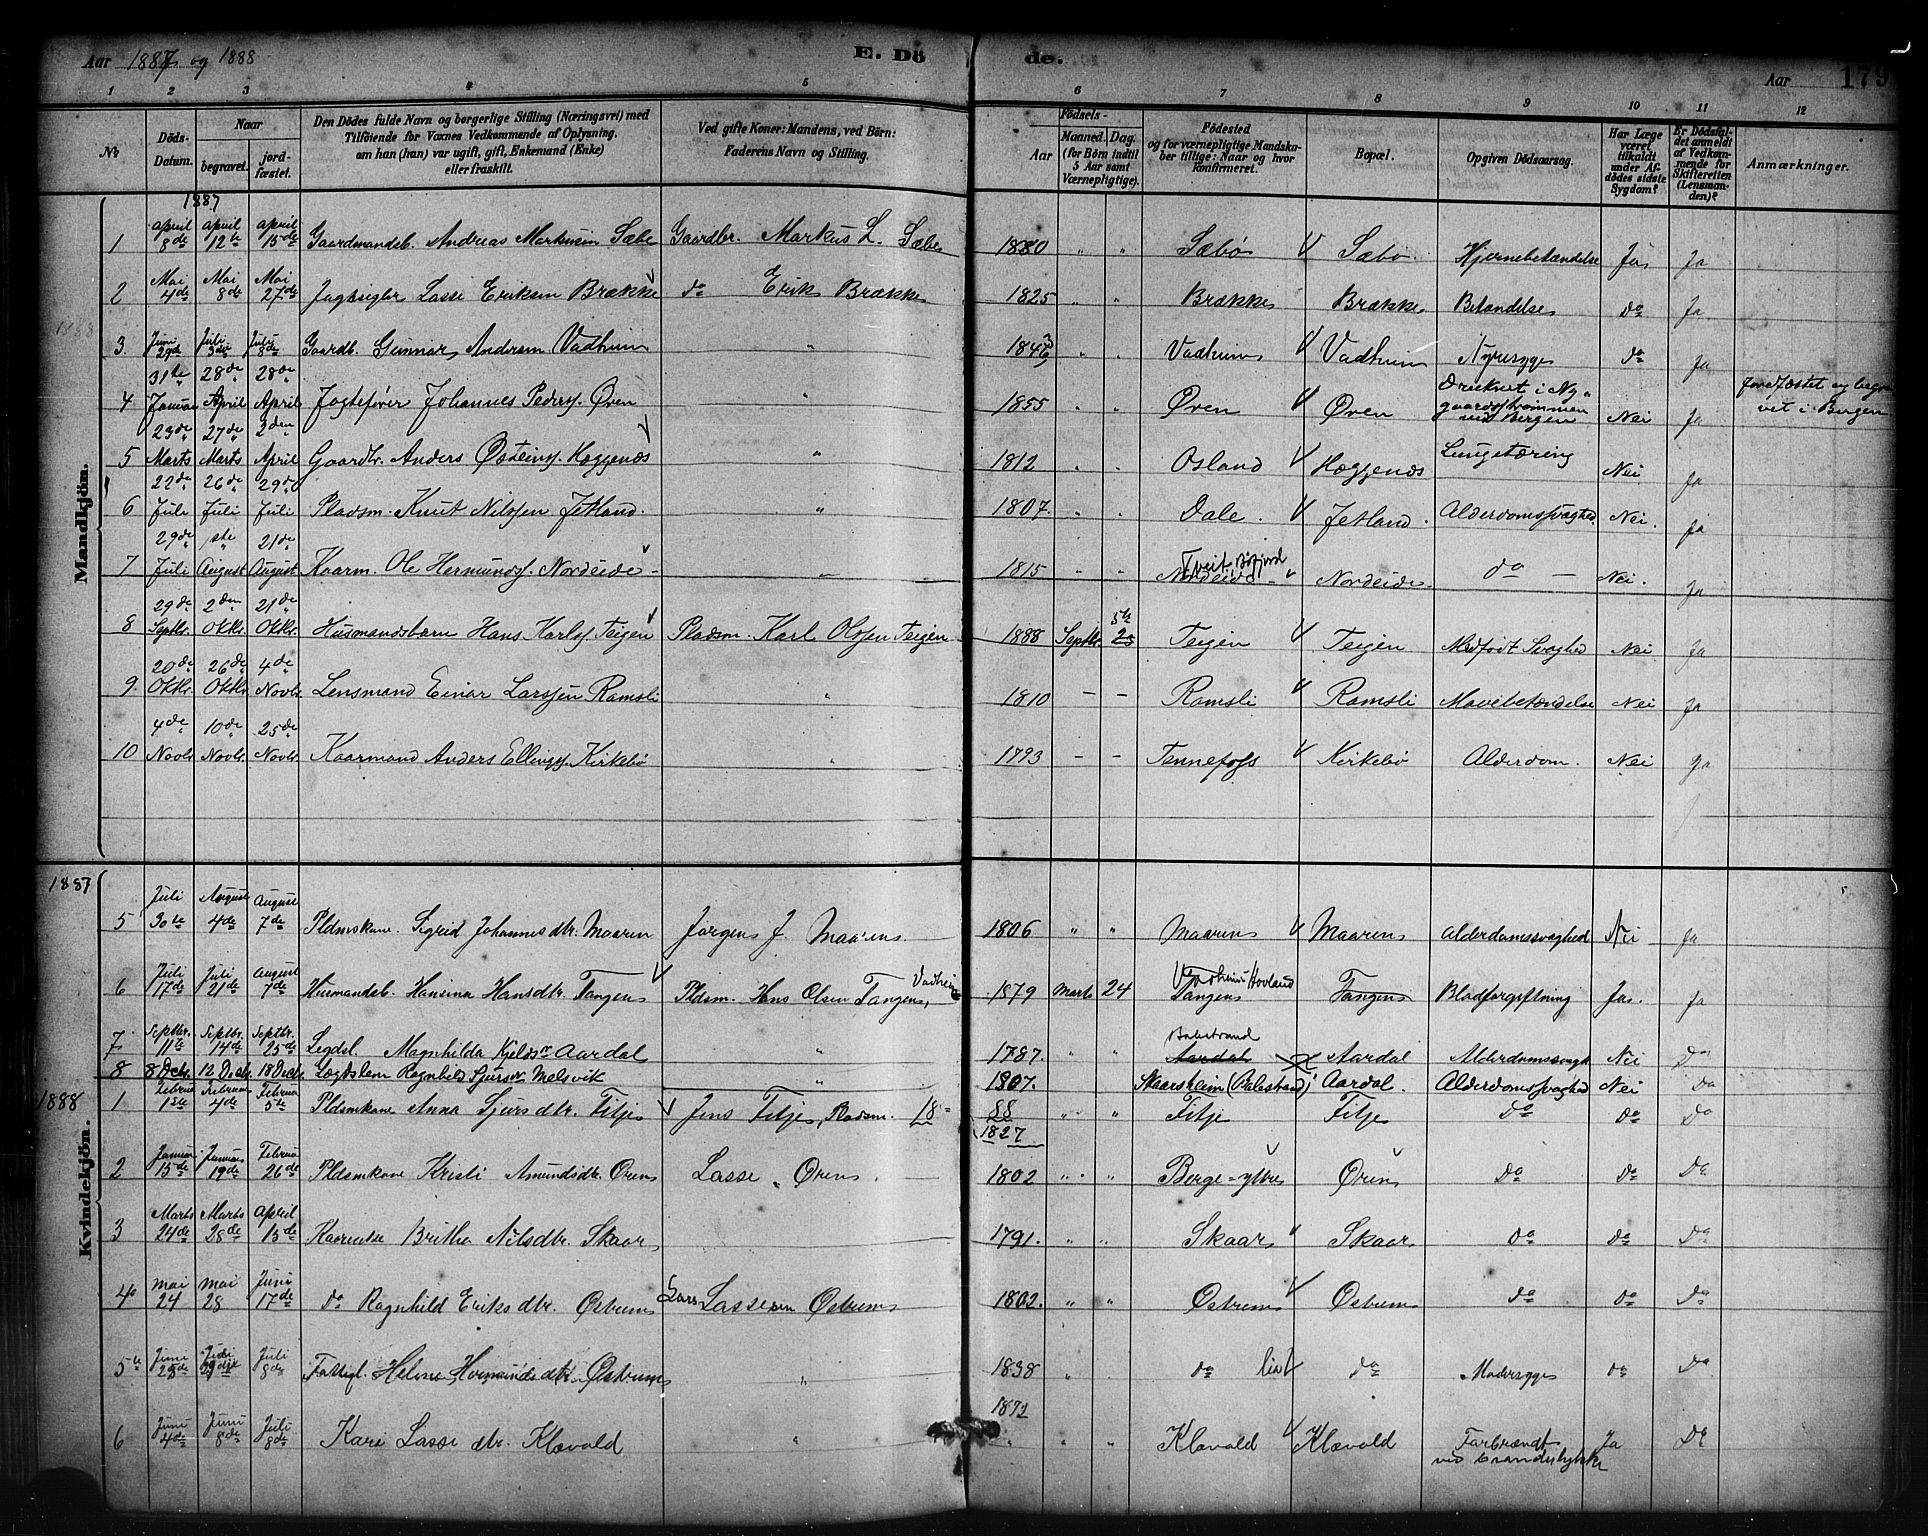 Aar 1887 og 1888 E. Dö de. Aar 179
1 2 3 4 5 6 7 8 9 10 11 12
No
Döds-Datum.
Naar begravet. jordfæstet.
Den Dödes fulde Navn og borgerlige Stilling (Næringsvei) med Tilföiende for Voxnes Vedkommende af Oplysning, om han (hun) var ugift, gift, Enkemand (Enke) eller fraskilt.
Ved gifte Koner: Mandens, ved Börn: Faderens Navn og Stilling.
Födsels- Aar Maaned. Dag. (for Börn indtil 5 Aar samt Værnepligtige).
Födested og for værnepligtige Mandskaber tillige: Naar og hvor konfirmeret.
Bopæl.
Opgiven Dödsaarsag.
Har Læge været tilkaldt under Afdödes sidste Sygdom?
Er Dödsfaldet anmeldt af Vedkommende for Skifteretten (Lensmanden)?
Anmærkninger.
Mandkjön.
1887
1 April 8de April 12te April 15de Gaardmandsb. Andreas Markusen Sæbø Gaardbr. Markus L. Sæbø 1880 " " Sæbø Sæbø Hjernebetændelse Ja Ja
2 Mai 4de Mai 8de Mai 27de Jagtseigler Lasse Eriksen Brække do Erik Brække 1825 " " Brække Brække Betændelse do Ja
1888
3 Juni 29de Juli 3die Juli 8de Gaardb. Gunnar Andersen Vadheim " 1846 " " Vadheim Vadheim Nyresyge do Ja
4 31te Januar 28de April 28de April Jagtefører Johannes Peders. Øren " 1855 " " Øren Øren Druknet i Nygaardsstrømmen ved Bergen Nei Ja Jordfæstet og begravet i Bergen
5 23de Marts 27de Marts 2den April Gaardbr. Anders Østeins. Høggenæs " 1812 " " Osland Høggenæs Lungetæring Nei Ja
6 22de Juli 26de Juli 29de Juli Pladsm. Knut Nilssen Jetland. " 1807. " " Dale. Jetland. Alderdomssvaghed Nei. Ja
7 29de Juli 1ste August 21de August Kaarm. Ole Hermunds. Nordeide " 1815 " " Nordeide Tveit, Bøfjord Nordeide do Nei. Ja
8 29de Septbr. 2den Oktbr. 21de Oktbr. Husmandsbarn Hans Karls. Teigen Pladsm. Karl Olssen Teigen 1888 Septbr. 25 5te Teigen Teigen Medfødt Svaghed Nei Ja
9. 20de Oktbr. 26de Oktbr. 4de Novbr. Lensmand Einar Larssen Ramsli " 1810 - - Ramsli Ramsli Mavebetændelse Nei Ja
10 4de Novbr. 10de Novbr. 25de Novbr. Kaarmand Anders Ellings. Kirkebø " 1793 - - Tennefoss Kirkebø Alderdom. Nei Ja
Kvindekjön.
1887
5 Juli 30te August 4de August 7de Pldsmskone. Sigrid Johannesdtr. Maaren Jørgen J. Maaren. 1806 " " Maaren Maaren Alderdomssvaghed Nei Ja
6 Juli 17de Juli 21de August 7de Husmandsb. Hansina Hansdtr. Tangen Pldsm. Hans Olsen Tangen, Vadheim 1879 Marts 24 Tangen Vadheim Hovland Tangen Blodforgiftning Ja. Ja
7 Septbr. 11te Septbr. 14de Septbr. 25de Legdsl. Magnhilda Kjelds Aardal " 1787. " " Aardal Balestrand Aardal Alderdomssvagh Nei Do
8 8 Decbr. 12 Decbr 18 Decbr. Lægdslem Ragnhild Sjurs Melsvik " 1807. Skaarsheim (Balestrand) Aardal. Alderdomssvaghed Nei Do
1888
1 Februar 1ste Februar 4de Februar 5te Pldsmkone Anna Sjursdtr. Fitje Jens Fitje, Pladsm. 18 88 1827 " " Fitje Fitje Do Do Do
2 Januar 15de Januar 19de Februar 26de Pldsmkone Kristi Amundsdtr. Øren Lasse Øren. 1802 " " Berge-yttre Øren Do Do Do
3 Marts 24de Marts 28de April 15de Kaarenke Britha Nilsdtr. Skaar 1791. " " Skaar Skaar Do Do Do
4 Mai 24 Mai 28 Juni 17de do Ragnhild Eriksdtr. Østrem Lars Lassesen Østrem 1802. " " Østrem Østrem Do Do Do
5te Juni 25de Juni Juli 8de Fattigl. Helene Hermundsdtr. Østrem " 1838 " do do Modersyge do Do
6 Juni 4de Juni 8de Juli 8de Kari Lasse dtr. Klævold " 1872 " " Klævold Klævold Forbrændt ved Ja Do